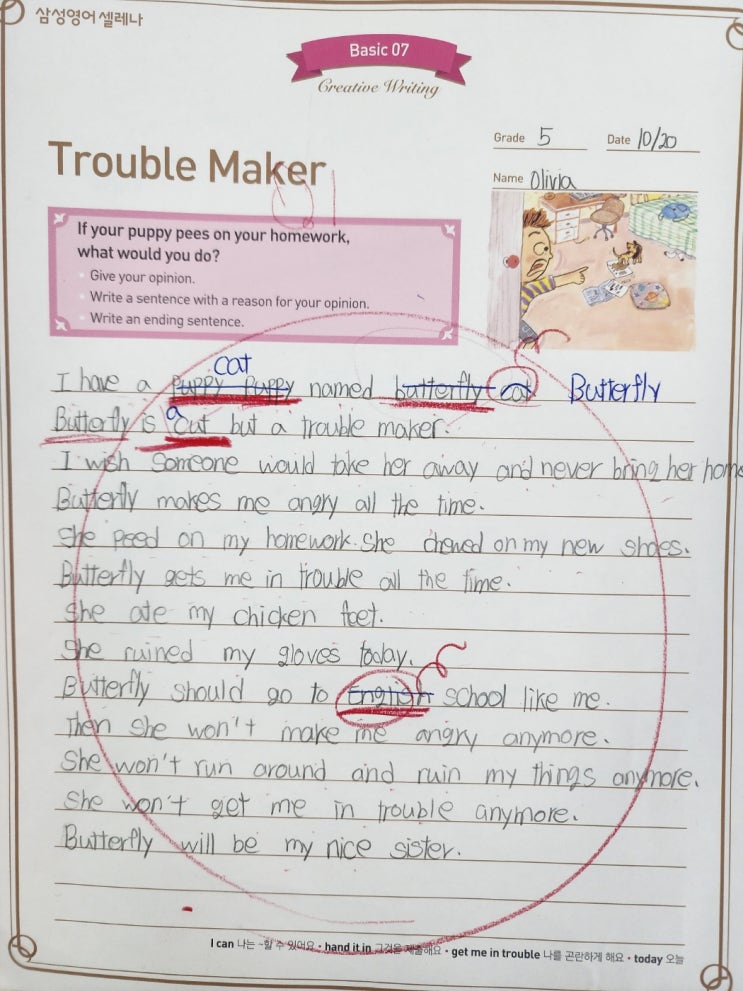 삼성영어 셀레나
Basic 07
Creative Writing
Grade 5 Date 10/20
Trouble Maker
Name Olivia
If your puppy pees on your homework,
what would you do?
Give your opinion.
Write a sentence with a reason for your opinion.
Write an ending sentence.
cat
I have a puppy puppy named butterfly cat Butterfly
a
Butterfly is cut but a trouble maker.
I wish someone would take her away and never bring her home
Butterfly makes me angry all the time.
She peed on my homework. She chewed on my new shoes.
Butterfly gets me in trouble all the time.
She ate my chicken feet.
She ruined my gloves today.
Butterfly should go to English school like me.
Then she won't make me angry anymore.
She won't run around and ruin my things anymore.
She won't get me in trouble anymore.
Butterfly will be my nice sister.
I can 나는 ~할 수 있어요 • hand it in 그것을 제출해요 • get me in trouble 나를 곤란하게 해요 • today 오늘